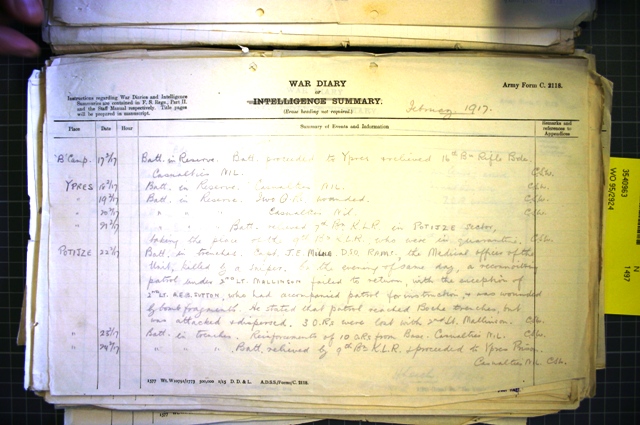 WAR DIARY
or
INTELLIGENCE SUMMARY.
(Erase heading not required.)
Army Form C. 2118.
Instructions regarding War Diaries and Intelligence
Summaries are contained in F. S. Regs., Part II.
and the Staff Manual respectively. Title pages
will be prepared in manuscript.
February 1917.
Place Date Hour Summary of Events and Information Remarks and references to Appendices
"B" Camp. 17/2/17 Batt. in Reserve. Batt. proceeded to Ypres & relieved 16th Bn Rifle Bde.
Casualties NIL.
YPRES 18/2/17 Batt. in Reserve. Casualties NIL.
" 19/2/17 Batt. in Reserve. Two O.Rs wounded.
" 20/2/17 " " " Casualties Nil.
" 21/2/17 " " " Batt. relieved 7th Bn K.L.R. in POTIJZE Sector,
taking the place of the 9th Bn K.L.R. who were in quarantine.
POTIJZE 22/2/17 Batt. in trenches. Capt. J.E. MILNE D.S.O. RAMC, the Medical Officer of the
Unit, killed by a sniper. In the evening of same day, a reconnoitring
patrol under 2nd LT. MALLINSON failed to return, with the exception of
2nd LT. SUTTON, who had accompanied patrol for instruction, & was wounded
by bomb fragments. He stated that patrol reached Boche trenches, but
was attacked & dispersed. 3 O.Rs were lost with 2nd Lt. Mallinson.
" 23/2/17 Batt. in trenches. Reinforcements of 10 ORs from Base. Casualties NIL.
" 24/2/17 " " " Batt. relieved by 9th Bn K.L.R. & proceeded to Ypres Prison.
Casualties NIL
1577 Wt. W10791/1773 500,000 1/15 D. D. & L. A.D.S.S./Forms/C. 2118.
3640963
WO 95/2924
N
1497